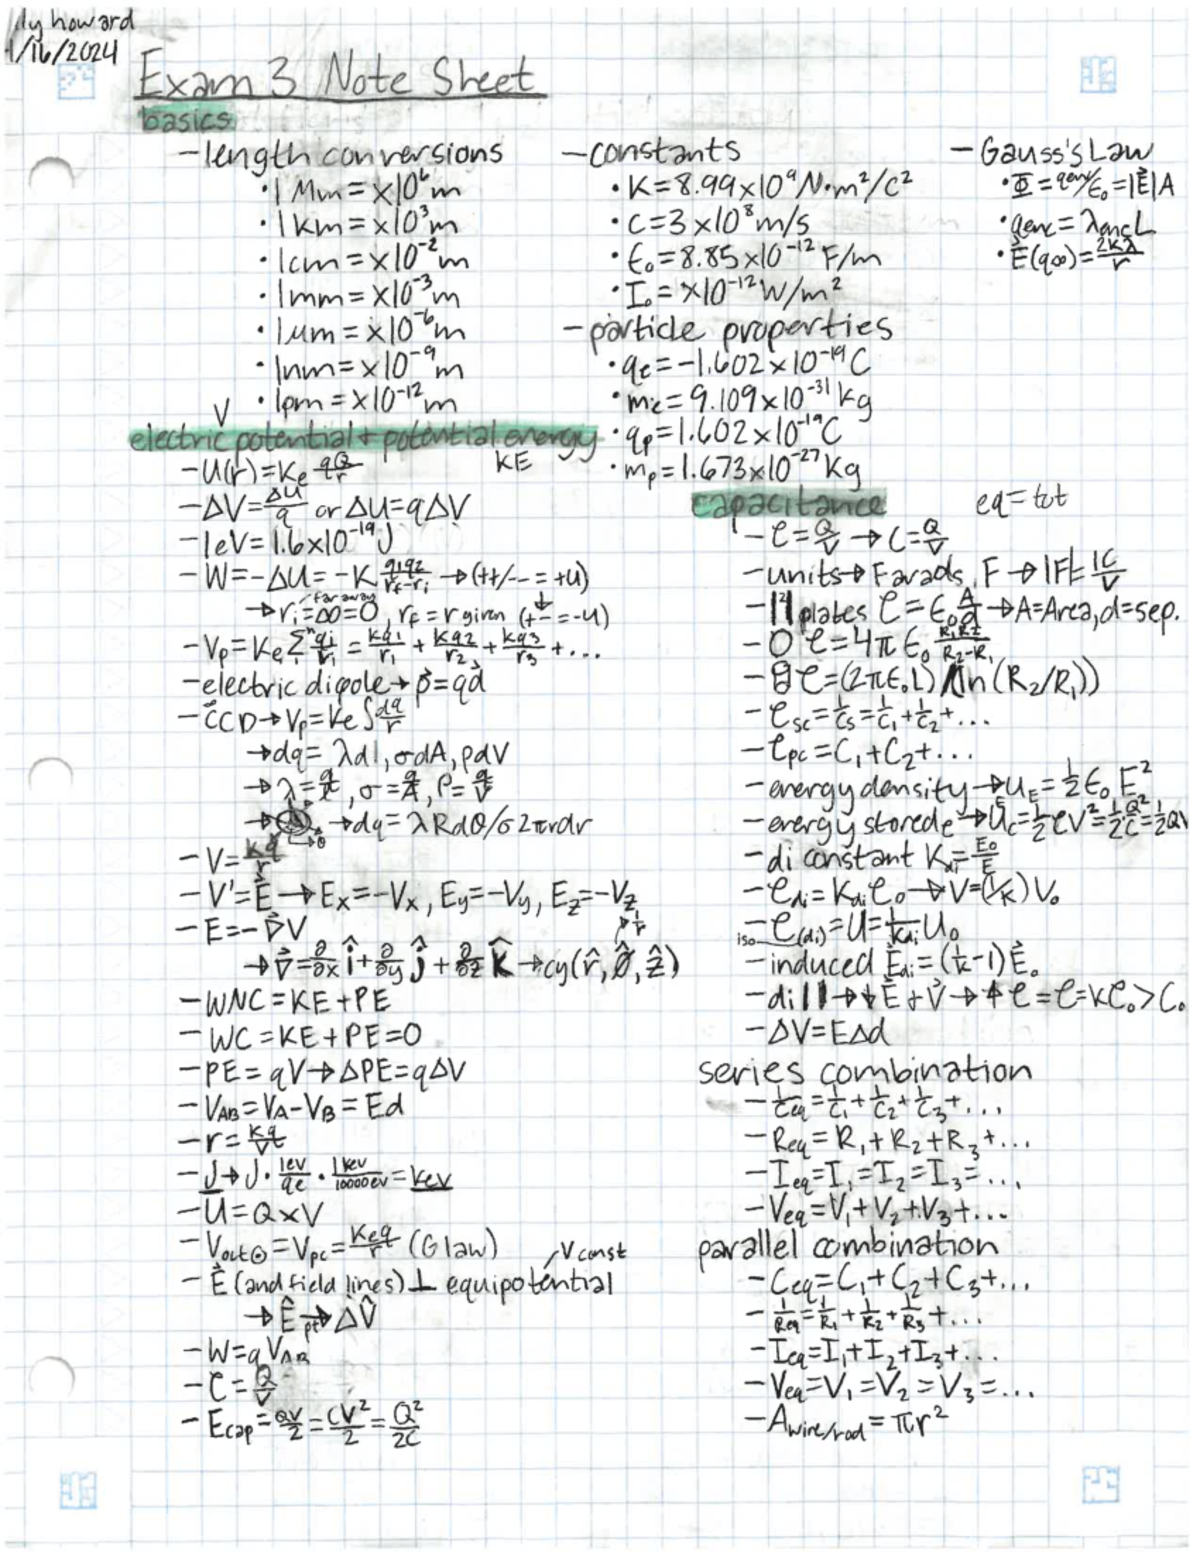 ily howard
1/16/2024
Exam 3 Note Sheet
basics
-length conversions
•1 Mm = x10⁶m
•1km = x10³m
•1cm = x10⁻²m
•1mm = x10⁻³m
•1um = x10⁻⁶m
•1nm = x10⁻⁹m
•1pm = x10⁻¹²m
-constants
•K=8.99x10⁹N•m²/C²
•C=3x10⁸m/s
•ε₀=8.85x10⁻¹²F/m
•I₀=x10⁻¹²W/m²
-particle properties
•qe=-1.602x10⁻¹⁹C
•me=9.109x10⁻³¹kg
•qp=1.602x10⁻¹⁹C
•mp=1.673x10⁻²⁷kg
-Gauss's Law
•Φ=qenc/ε₀=|E⃗|A
•qenc=λencL
•E⃗(q∞)=2kλ/r
V
electric potential + potential energy
KE
-U(r)=Ke qQ/r
-ΔV=ΔU/q or ΔU=qΔV
-1eV=1.6x10⁻¹⁹J
-W=-ΔU=-K q1q2/rf-ri →(++/--=+U)
far away
→ri=∞=0, rf=r given (+-=-U)
-Vp=Ke Σ qi/ri = kq1/r1 + kq2/r2 + kq3/r3 +...
-electric dipole→p⃗=qd⃗
-CCD→Vp=Ke∫dq/r
→dq=λdl, σdA, ρdV
→λ=q/l, σ=q/A, ρ=q/V
→dq=λRdθ/σ2πrdr
-V=kq/r
-V'=E⃗→Ex=-Vx, Ey=-Vy, Ez=-Vz
-E=-∇⃗V
→1/r
→∇⃗=∂/∂x î+∂/∂y ĵ+∂/∂z k̂→cy(r̂,ø̂,ẑ)
-WNC=KE+PE
-WC=KE+PE=0
-PE=qV→ΔPE=qΔV
-VAB=VA-VB=Ed
-J→J•1ev/qe•1kev/10000ev=kev
-U=QxV
-Vout⊙=Vpc=Keq/r (G law)
V const
-E⃗(and field lines)⊥ equipotential
-W=qVAB
-C=Q/V
-Ecap=QV/2=CV²/2=Q²/2C
capacitance
eq=tot
-C=Q/V→C=Q/V
-units→Farads, F→1F=1C/V
-|| plates C=ε₀A/d→A=Area, d=sep.
-O C=4πε₀ R1R2/R2-R1
-C=(2πε₀L)/ln(R2/R1))
-Csc=1/Cs=1/C1+1/C2+...
-Cpc=C1+C2+...
-energy density→uE=½ε₀E²
-energy storede→Uc=½CV²=½Q²/C=½QV
-di constant Kdi=E₀/E
-Cdi=KdiC₀→V=(1/k)V₀
iso
-C(di)=U=1/Kdi U₀
-induced E⃗di=(1/k-1)E⃗₀
-di||→↓E⃗+V⃗→↑C=C=kC₀>C₀
-ΔV=EΔd
series combination
-1/Ceq=1/C1+1/C2+1/C3+...
-Req=R1+R2+R3+...
-Ieq=I1=I2=I3=...
-Veq=V1+V2+V3+...
parallel combination
-Ceq=C1+C2+C3+...
-1/Req=1/R1+1/R2+1/R3+...
-Ieq=I1+I2+I3+...
-Veq=V1=V2=V3=...
-Awire/rod=πr²